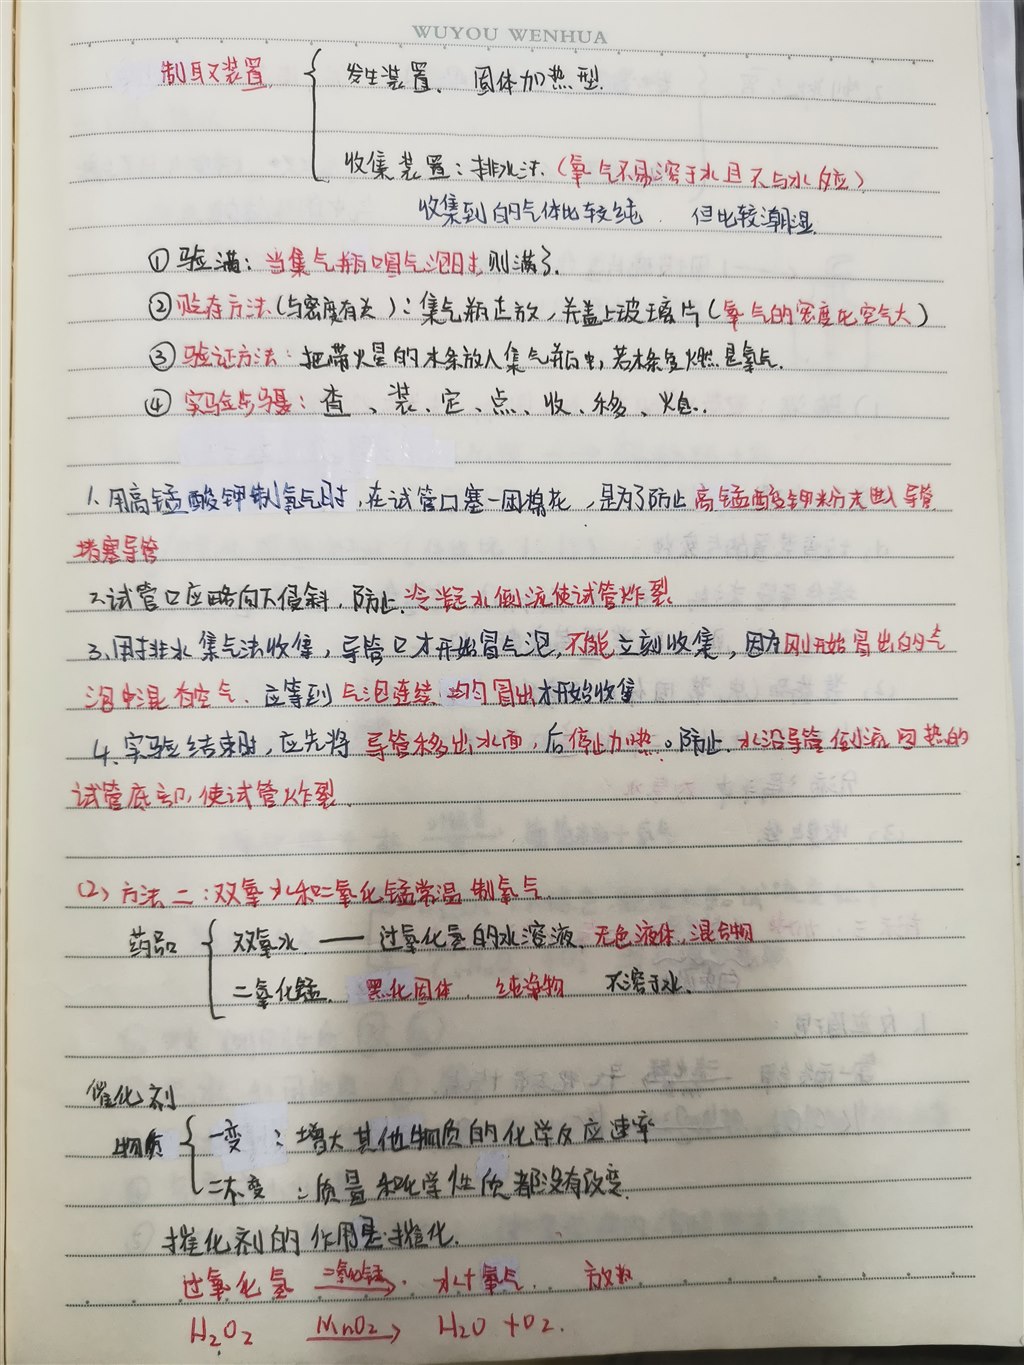 WUYOU WENHUA
制取装置 { 发生装置、固体加热型.
收集装置：排水法.（氧气不易溶于水且不与水反应）
收集到的气体比较纯. 但比较潮湿.
① 验满：当集气瓶口冒气泡时,则满了.
② 贮存方法（与密度有关）：集气瓶正放，并盖上玻璃片（氧气的密度比空气大）
③ 验证方法：把带火星的木条放入集气瓶中，若木条复燃是氧气.
④ 实验步骤：查、装、定、点、收、移、熄.
1. 用高锰酸钾制氧气时，在试管口塞一团棉花，是为了防止高锰酸钾粉末进入导管
堵塞导管
2.试管口应略向下倾斜，防止.冷凝水倒流使试管炸裂
3.用排水集气法收集，导管口才开始冒气泡,不能立刻收集，因为刚开始冒出的气
泡中混有空气. 应等到气泡连续.均匀冒出才开始收集
4.实验结束时，应先将导管移出水面，后停止加热。防止.水沿导管倒流回热的
试管底部,使试管炸裂.
（2）方法二：双氧水和二氧化锰常温制氧气.
药品 { 双氧水 — 过氧化氢的水溶液.无色液体,混合物
二氧化锰. 黑色固体. 纯净物 不溶于水.
催化剂
物质 { 一变：增大其他物质的化学反应速率
二不变：质量和化学性质都没有改变.
催化剂的作用是催化.
过氧化氢 二氧化锰→ 水+氧气. 放热
H₂O₂ MnO₂→ H₂O + O₂.